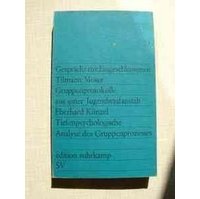 Gespräche mit Eingeschlossenen
Tilmann Moser
Gruppenprotokolle
aus einer Jugendstrafanstalt
Eberhard Künzel
Tiefenpsychologische
Analyse des Gruppenprozesses
edition suhrkamp
SV